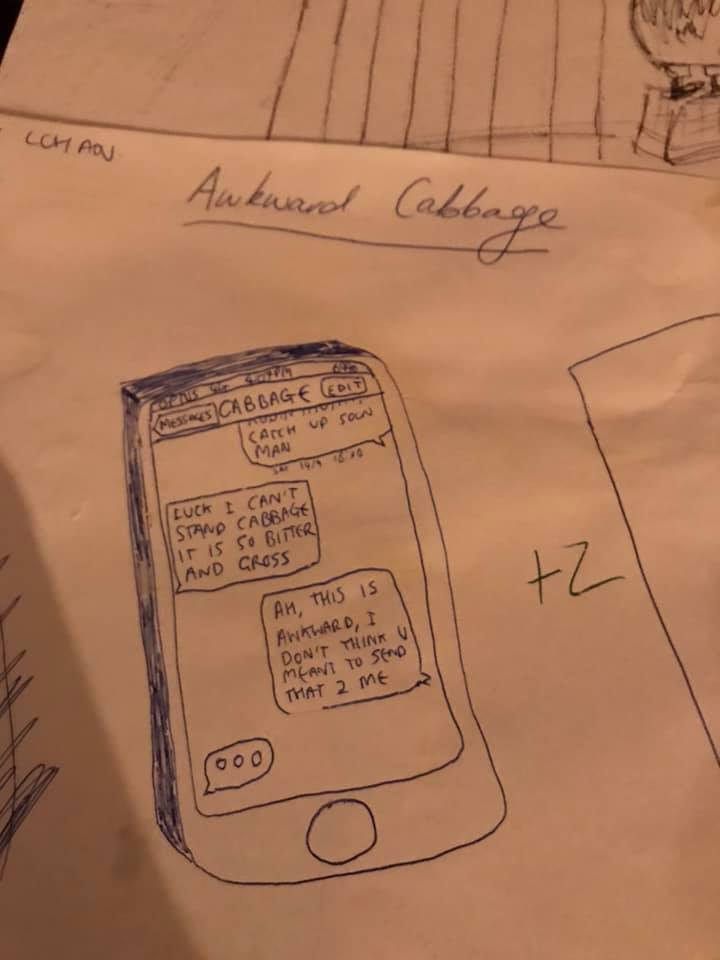 LCHAN
Awkward Cabbage
OPTUS 4G
MESSAGES CABBAGE EDIT
CATCH UP SOON
MAN
SAT 14/9
LUCK I CAN'T
STAND CABBAGE
IT IS SO BITTER
AND GROSS
AH, THIS IS
AWKWARD, I
DON'T THINK U
MEANT TO SEND
THAT 2 ME
+2